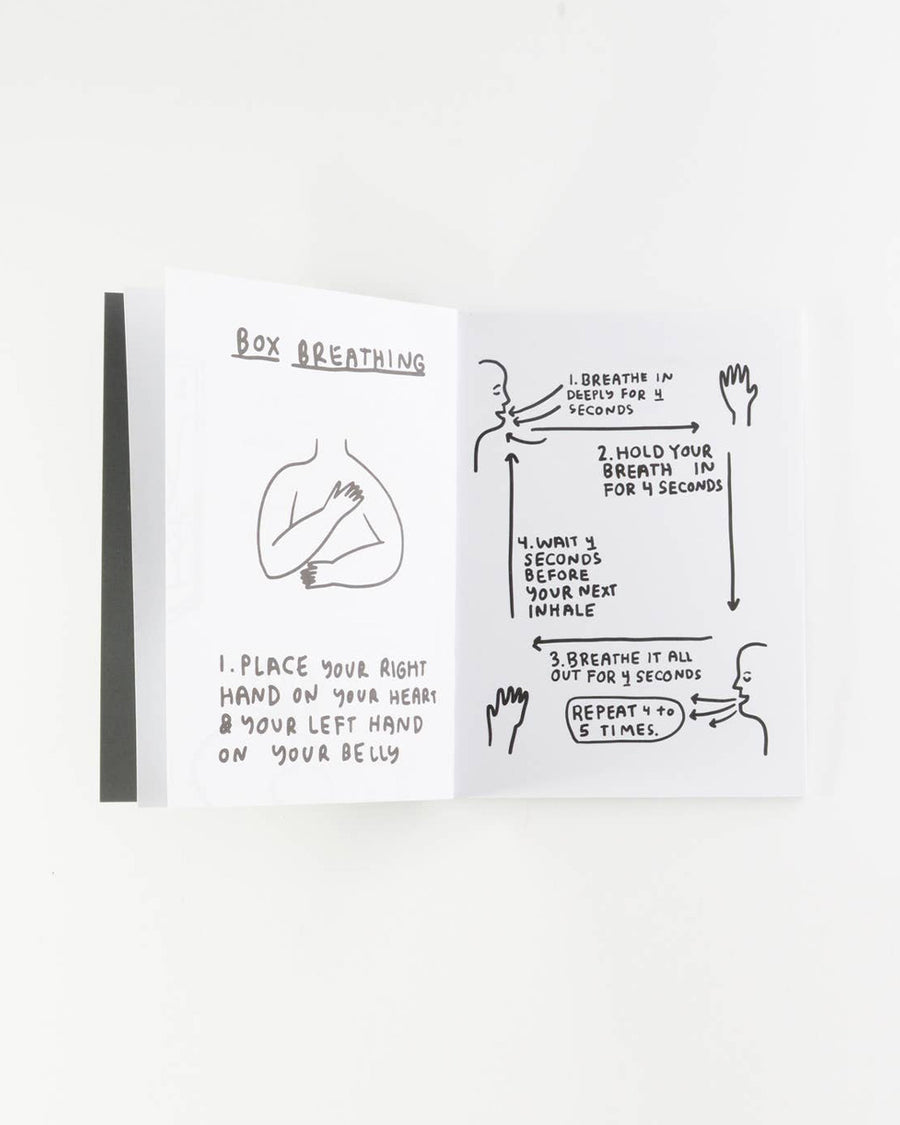 BOX BREATHING
1. PLACE YOUR RIGHT
HAND ON YOUR HEART
& YOUR LEFT HAND
ON YOUR BELLY
1. BREATHE IN
DEEPLY FOR 4
SECONDS
2. HOLD YOUR
BREATH IN
FOR 4 SECONDS
3. BREATHE IT ALL
OUT FOR 4 SECONDS
REPEAT 4 to
5 TIMES.
4. WAIT 4
SECONDS
BEFORE
YOUR NEXT
INHALE